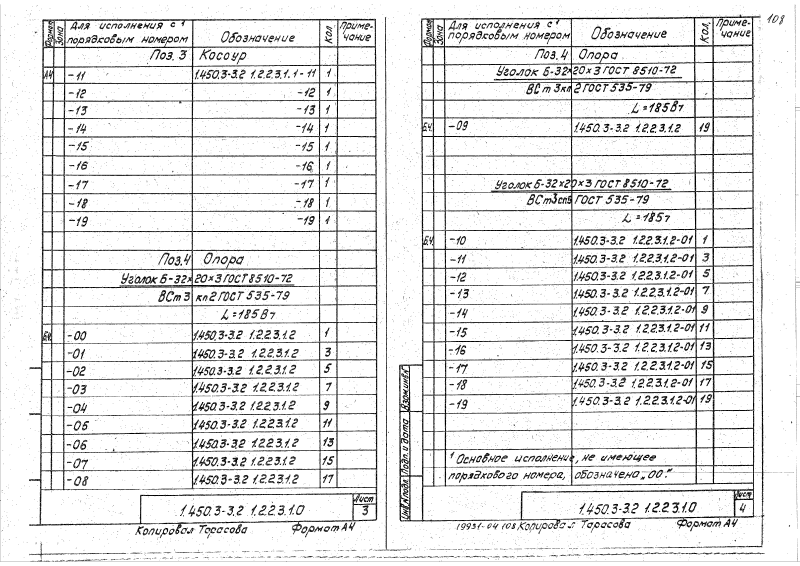 108
Формат Зона Для исполнения с¹ порядковым номером Обозначение Кол. Примечание
Поз. 3 Косоур
А4 -11 1.450.3-3.2 1.2.2.3.1.1-11 1
-12 -12 1
-13 -13 1
-14 -14 1
-15 -15 1
-16 -16 1
-17 -17 1
-18 -18 1
-19 -19 1
Поз.4 Опора
Уголок Б-32×20×3 ГОСТ 8510-72
ВСт 3 кп 2 ГОСТ 535-79
L=185Вт
Б.Ч. -00 1.450.3-3.2 1.2.2.3.1.2 1
-01 1.450.3-3.2 1.2.2.3.1.2 3
-02 1.450.3-3.2 1.2.2.3.1.2 5
-03 1.450.3-3.2 1.2.2.3.1.2 7
-04 1.450.3-3.2 1.2.2.3.1.2 9
-05 1.450.3-3.2 1.2.2.3.1.2 11
-06 1.450.3-3.2 1.2.2.3.1.2 13
-07 1.450.3-3.2 1.2.2.3.1.2 15
-08 1.450.3-3.2 1.2.2.3.1.2 17
1.450.3-3.2 1.2.2.3.1.0
Лист
3
Копировал Тарасова Формат А4
Формат Зона Для исполнения с¹ порядковым номером Обозначение Кол. Примечание
Поз.4 Опора
Уголок Б-32×20×3 ГОСТ 8510-72
ВСт 3кп 2 ГОСТ 535-79
L=185Вт
Б.Ч. -09 1.450.3-3.2 1.2.2.3.1.2 19
Уголок Б-32×20×3 ГОСТ 8510-72
ВСт3сп5 ГОСТ 535-79
L=185т
Б.Ч. -10 1.450.3-3.2 1.2.2.3.1.2-01 1
-11 1.450.3-3.2 1.2.2.3.1.2-01 3
-12 1.450.3-3.2 1.2.2.3.1.2-01 5
-13 1.450.3-3.2 1.2.2.3.1.2-01 7
-14 1.450.3-3.2 1.2.2.3.1.2-01 9
-15 1.450.3-3.2 1.2.2.3.1.2-01 11
-16 1.450.3-3.2 1.2.2.3.1.2-01 13
-17 1.450.3-3.2 1.2.2.3.1.2-01 15
-18 1.450.3-3.2 1.2.2.3.1.2-01 17
-19 1.450.3-3.2 1.2.2.3.1.2-01 19
¹ Основное исполнение, не имеющее
порядкового номера, обозначена „00."
Инв.№подл. Подп. и дата Взам.инв.№
1.450.3-3.2 1.2.2.3.1.0
Лист
4
19931-04 108 Копировал Тарасова Формат А4